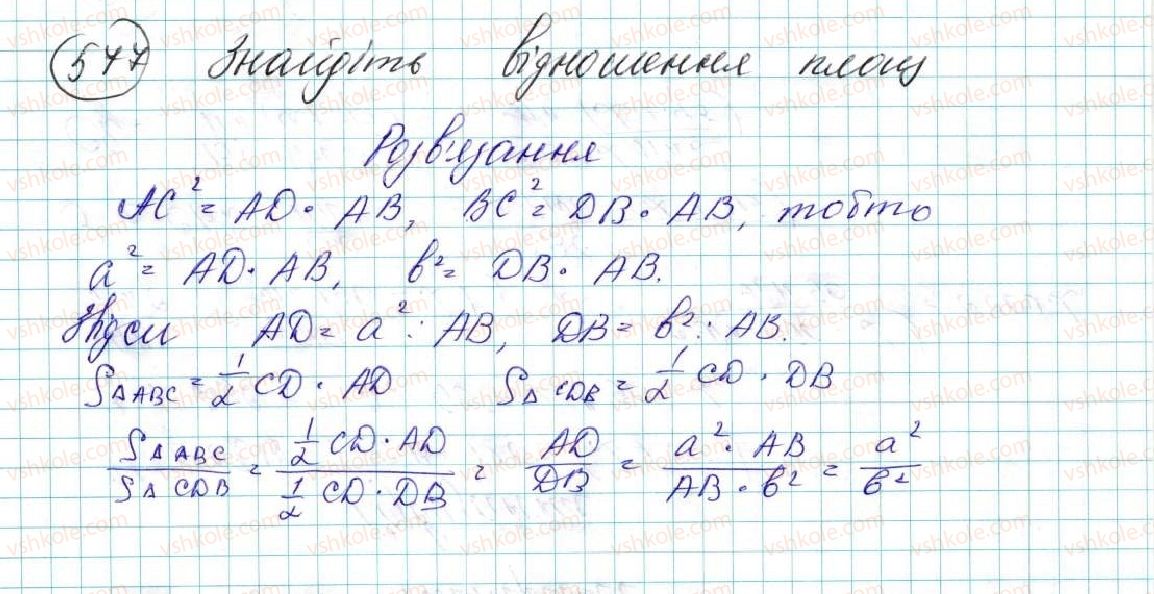 577 Знайдіть відношення площ
Розв'язання
AC² = AD · AB, BC² = DB · AB, тобто
a² = AD · AB, b² = DB · AB.
Звідси AD = a² : AB, DB = b² : AB.
S△ABC = 1/2 CD · AD S△CDB = 1/2 CD · DB
S△ABC / S△CDB = (1/2 CD · AD) / (1/2 CD · DB) = AD / DB = (a² · AB) / (AB · b²) = a² / b²